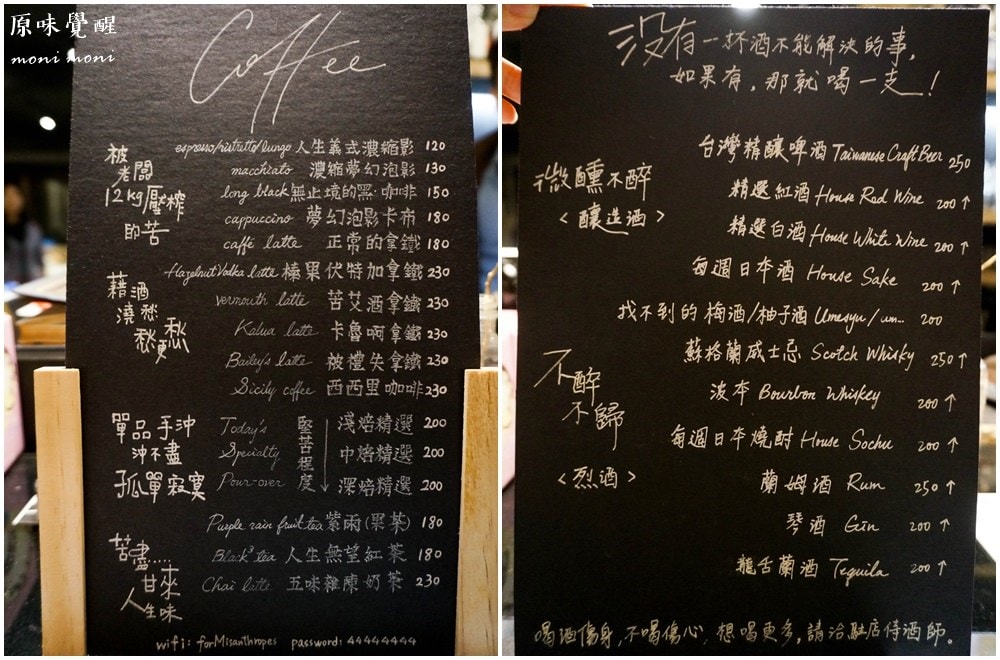 原味覺醒
moni moni
Coffee
被
老闆
12kg壓榨
即苦
espresso/ristretto/lungo 人生義式濃縮影 120
macchiato 濃縮夢幻泡影 130
long black 無止境的黑·咖啡 150
cappuccino 夢幻泡影卡布 180
caffé latte 正常的拿鐵 180
藉酒
澆愁
愁更愁
Hazelnut Vodka latte 榛果伏特加拿鐵 230
vermouth latte 苦艾酒拿鐵 230
Kalua latte 卡魯啊拿鐵 230
Bailey's latte 被禮失拿鐵 230
Sicily coffee 西西里咖啡 230
單品手沖
沖不盡
孤單寂寞
Today's
Specialty
Pour-over
堅苦程度
淺焙精選 200
中焙精選 200
深焙精選 200
苦盡....
甘來
人生味
Purple rain fruit tea 紫雨(果茶) 180
Black³ tea 人生無望紅茶 180
Chai latte 五味雜陳奶茶 230
wifi: forMisanthropes password: 44444444
沒有一杯酒不能解決的事,
如果有,那就喝一支!
微醺不醉
<釀造酒>
台灣精釀啤酒 Taiwanese Craft Beer 250
精選紅酒 House Red Wine 200↑
精選白酒 House White Wine 200↑
每週日本酒 House Sake 200↑
找不到的梅酒/柚子酒 Umesyu / um... 200
不醉
不歸
<烈酒>
蘇格蘭威士忌 Scotch Whisky 250↑
波本 Bourbon Whiskey 200↑
每週日本燒酎 House Sochu 200↑
蘭姆酒 Rum 250↑
琴酒 Gin 200↑
龍舌蘭酒 Tequila 200↑
喝酒傷身,不喝傷心,想喝更多,請洽駐店侍酒師。